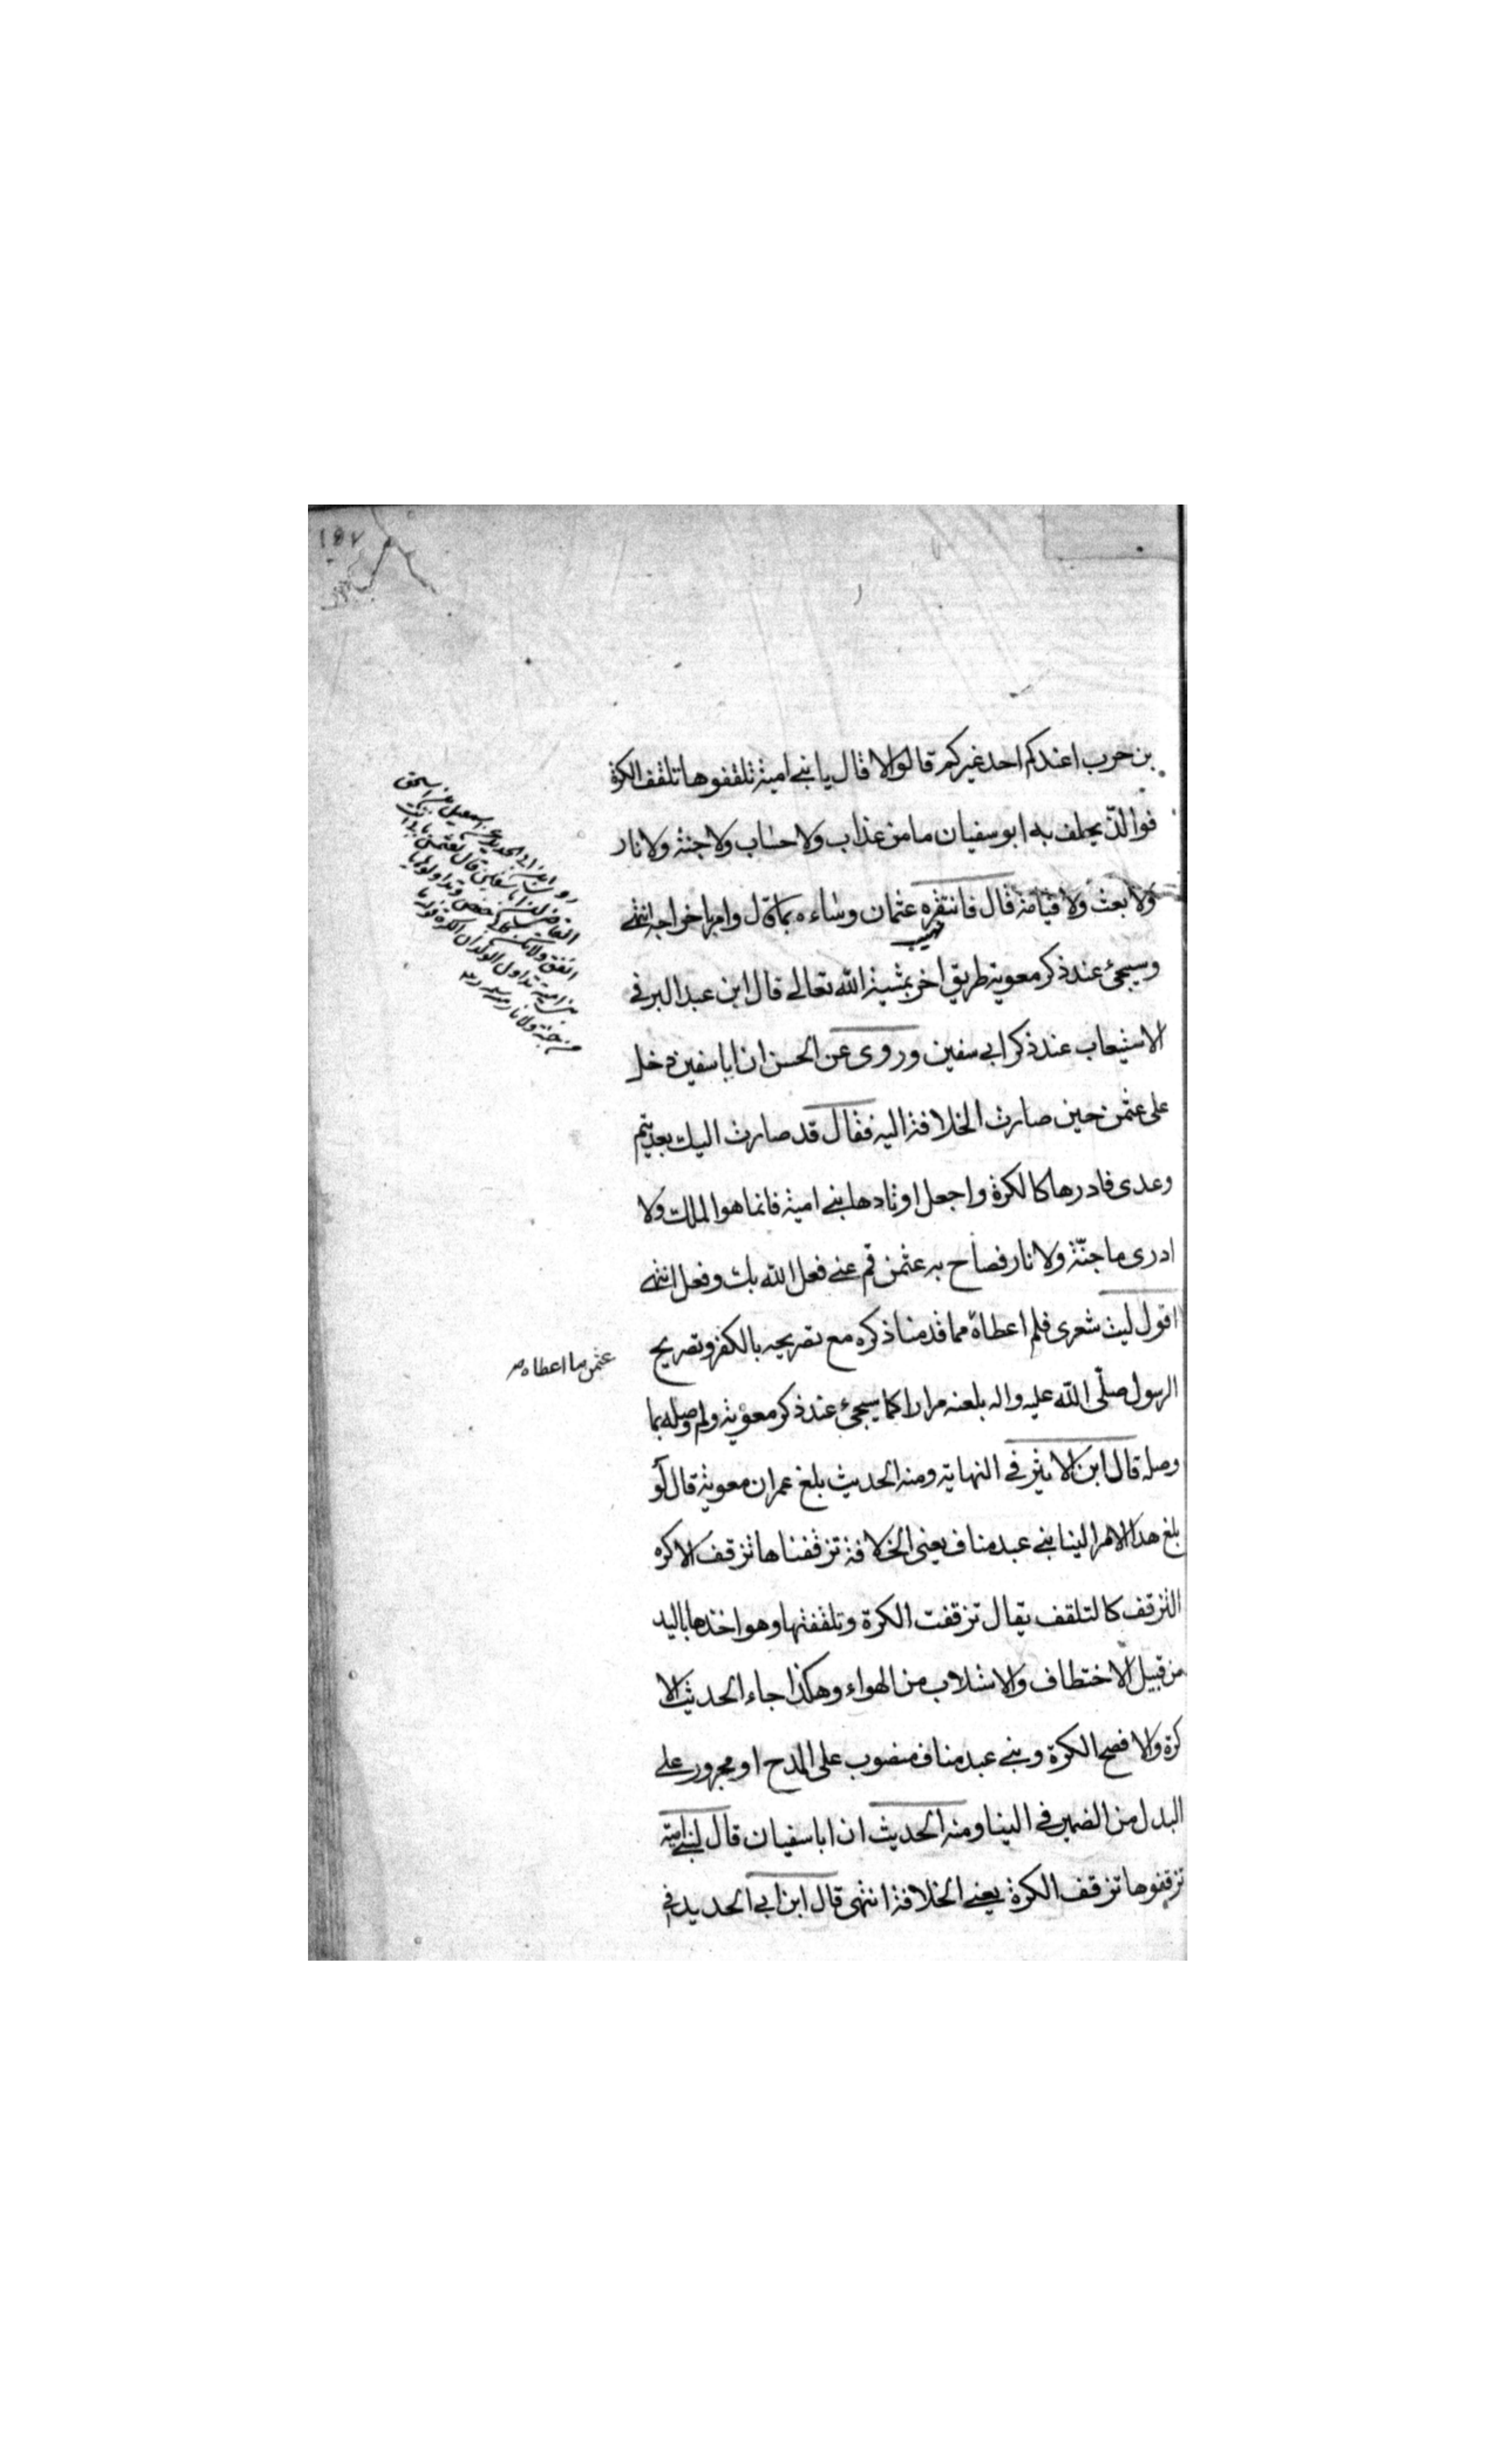 ١٥٧
بن حرب اعندكم احد غيركم قالوا لا قال يا بنى امية تلقفوها تلقف الكرة
فوالذى يحلف به ابو سفيان ما من عذاب ولا حساب ولا جنة ولا نار
ولا بعث ولا قيامة قال فانتهره عثمان وساءه بما قال وامر باخراجه انتهى
وسيجئ عند ذكر معوية طريق اخر بمشية الله تعالى قال ابن عبد البر فى
الاستيعاب عند ذكر ابى سفين وروى عن الحسن ان ابا سفين دخل
على عثمن حين صارت الخلافة اليه فقال قد صارت اليك بعد تيم
وعدى فادرها كالكرة واجعل اوتادها بنى امية فانما هو الملك ولا
ادرى ما جنّة ولا نار فصاح به عثمن قم عنى فعل الله بك وفعل انتهى
اقول ليت شعرى فلم اعطاه مما قدمنا ذكره مع تصريحه بالكفر وتصريح
عثمن ما اعطاه
الرسول صلّى الله عليه واله بلعنه مرارا كما سيجئ عند ذكر معوية ولم وصله بما
وصله قال ابن الاثير فى النهاية ومنه الحديث بلغ عمر ان معوية قال لو
بلغ هذا الامر الينا بنى عبد مناف يعنى الخلافة تزقفناها تزقف الاكره
التزقف كالتلقف يقال تزقفت الكرة وتلقفتها وهو اخذها باليد
من قبيل الاختطاف والاستلاب من الهواء وهكذا جاء الحديث الا
كرة والافصح الكرة وبنى عبد مناف منصوب على المدح او مجرور على
البدل من الضمير فى الينا ومنه الحديث ان ابا سفيان قال لبنى امية
تزقفوها تزقف الكرة يعنى الخلافة انتهى قال ابن ابى الحديد فى